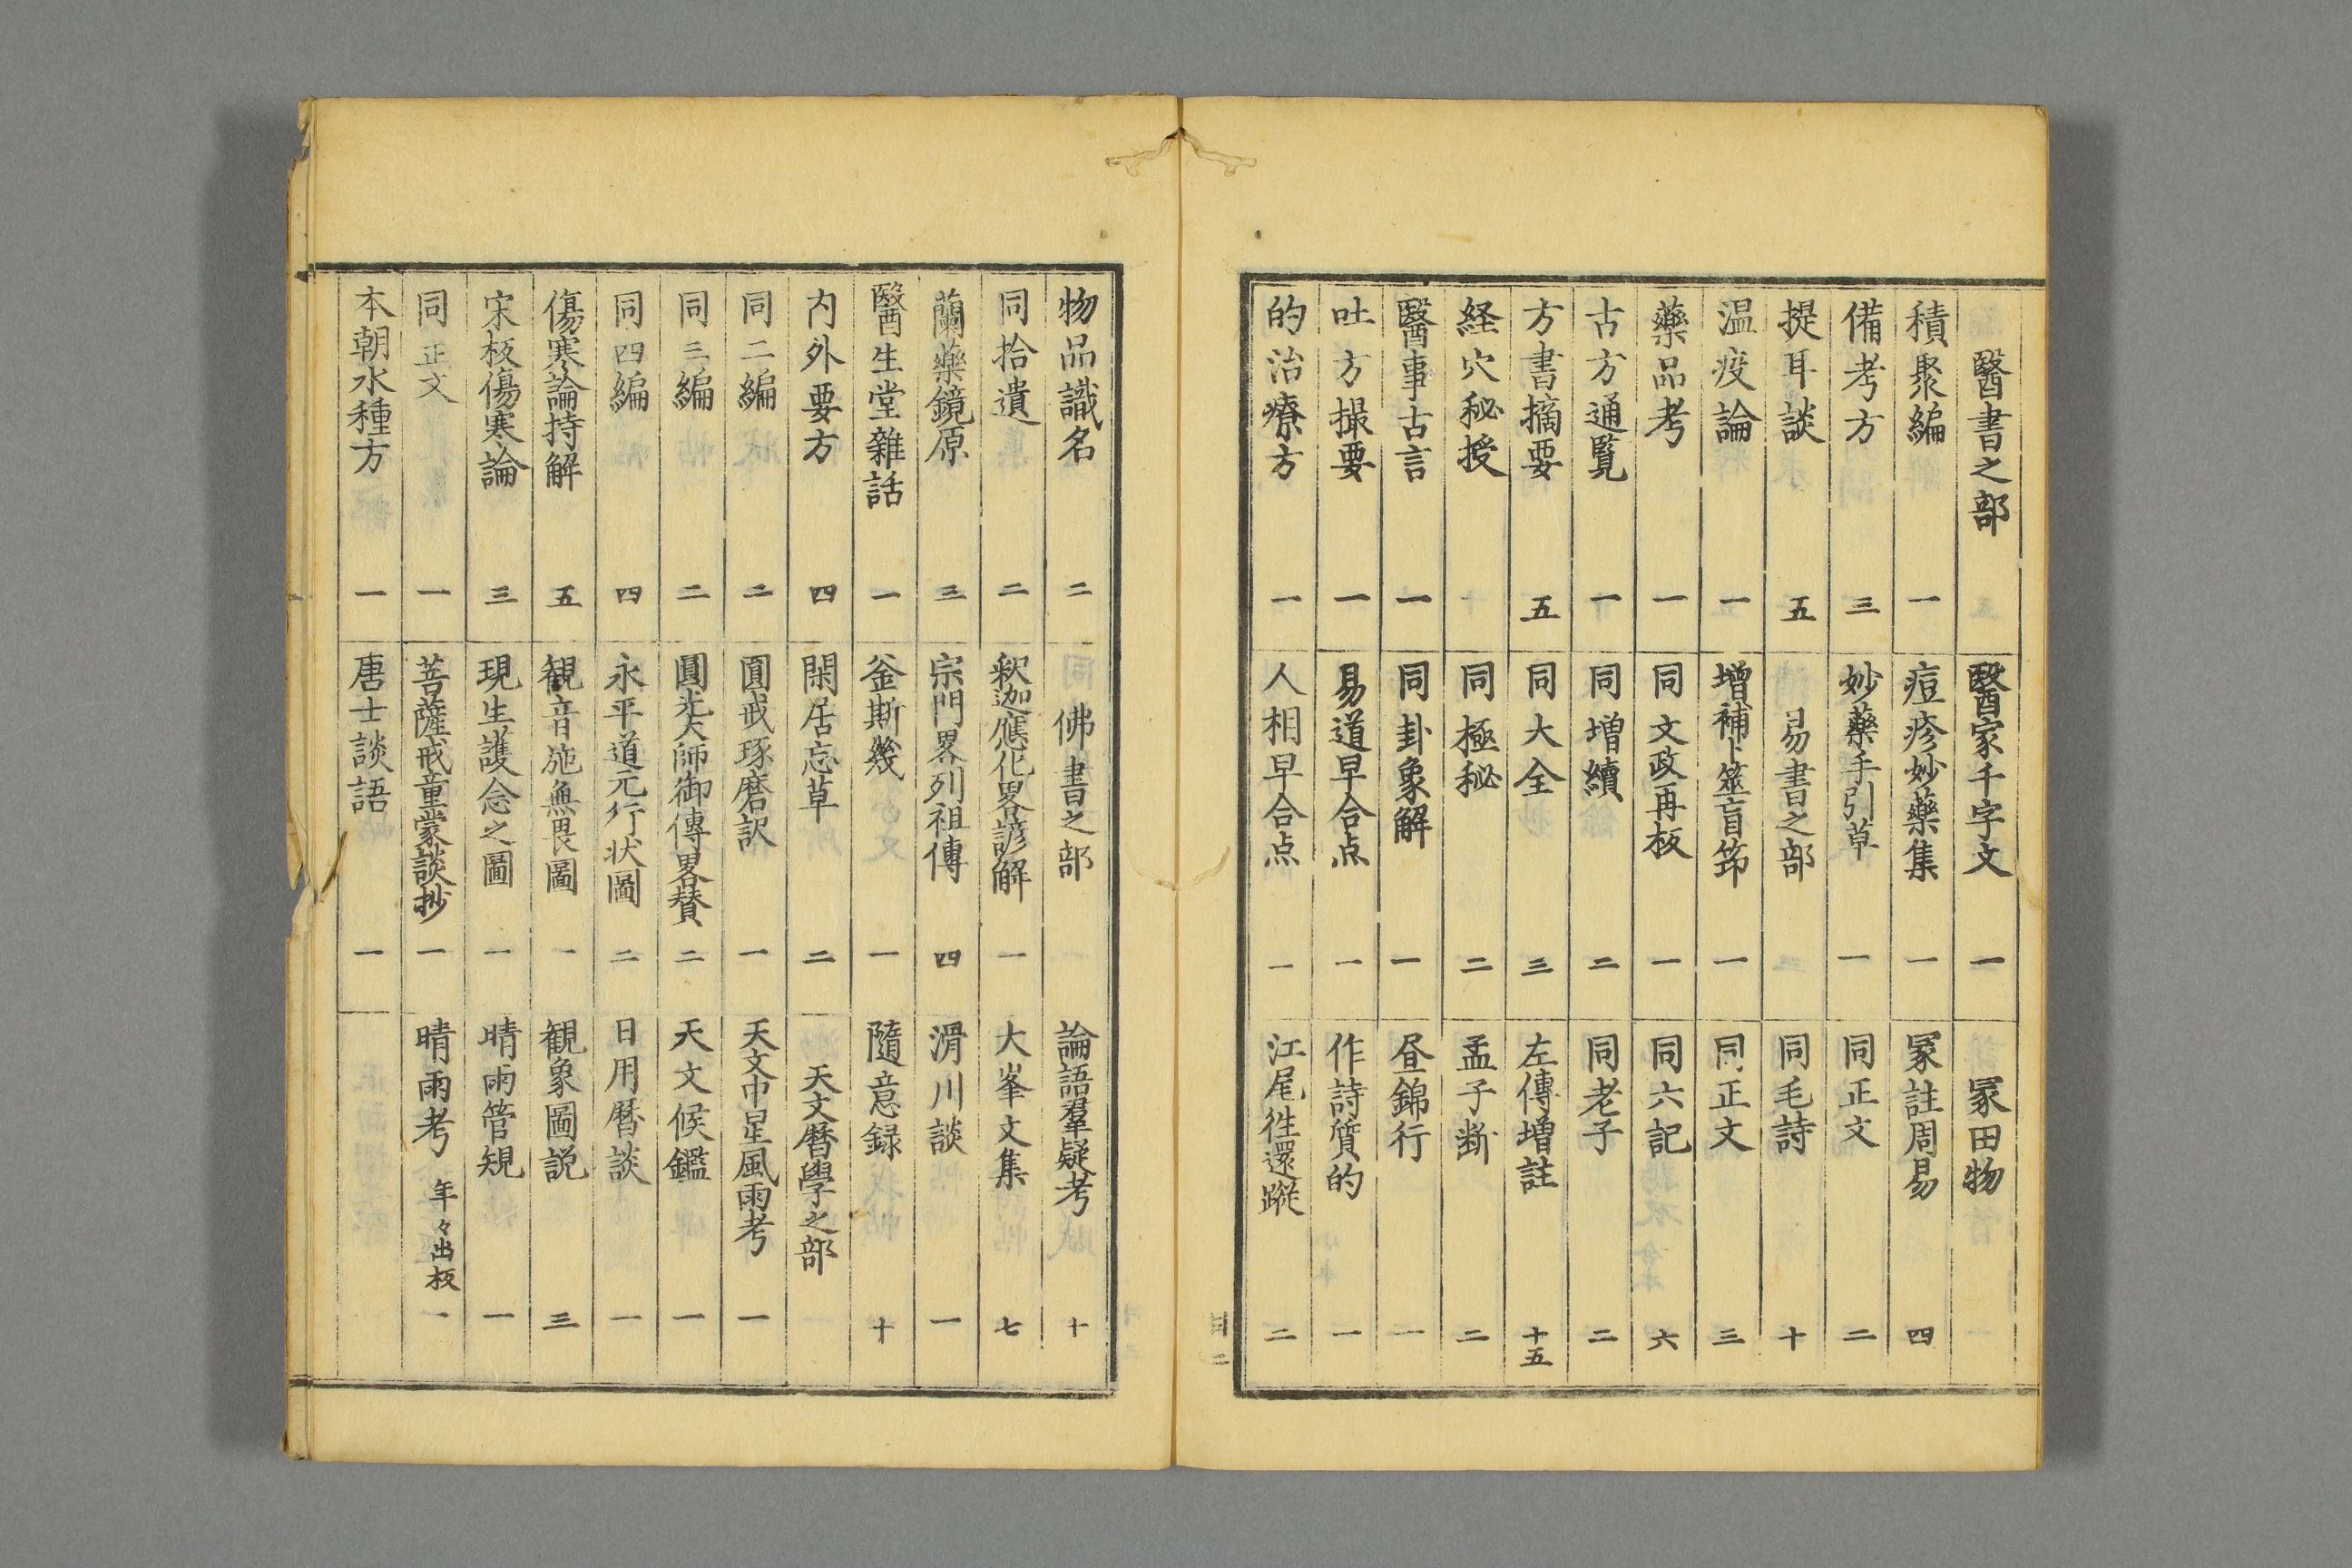 醫書之部
積聚編 一
備考方 三
提耳談 五
温疫論 一
藥品考 一
古方通覧 一
方書摘要 五
経穴秘授
醫事古言 一
吐方撮要 一
的治療方 一
醫家千字文 一
痘疹妙藥集 一
妙藥手引草 一
易書之部
増補卜筮盲笻 一
同文政再板 一
同増續 二
同大全 三
同極秘 二
同卦象解 一
易道早合点 一
人相早合点 一
冢田物
冢註周易 四
同正文 二
同毛詩 十
同正文 三
同六記 六
同老子 二
左傳増註 十五
孟子断 二
昼錦行 一
作詩質的 一
江尾徃還蹤 二
物品識名 二
同拾遺 二
蘭藥鏡原 三
醫生堂雜話 一
内外要方 四
同二編 二
同三編 二
同四編 四
傷寒論持解 五
宋板傷寒論 三
同正文 一
本朝水種方 一
佛書之部
釈迦應化畧諺解 一
宗門畧列祖傳 四
釜斯幾 一
閑居忘草 二
圓戒琢磨訳 一
圓光大師御傳畧賛 二
永平道元行状圖 二
観音施無畏圖 一
現生護念之圖 一
菩薩戒童蒙談抄 一
唐士談語 一
論語羣疑考 十
大峯文集 七
滑川談 一
隨意録 十
天文暦學之部
天文中星風雨考 一
天文候鑑 一
日用暦談 一
観象圖説 三
晴雨管䂓 一
晴雨考 年々出板 一